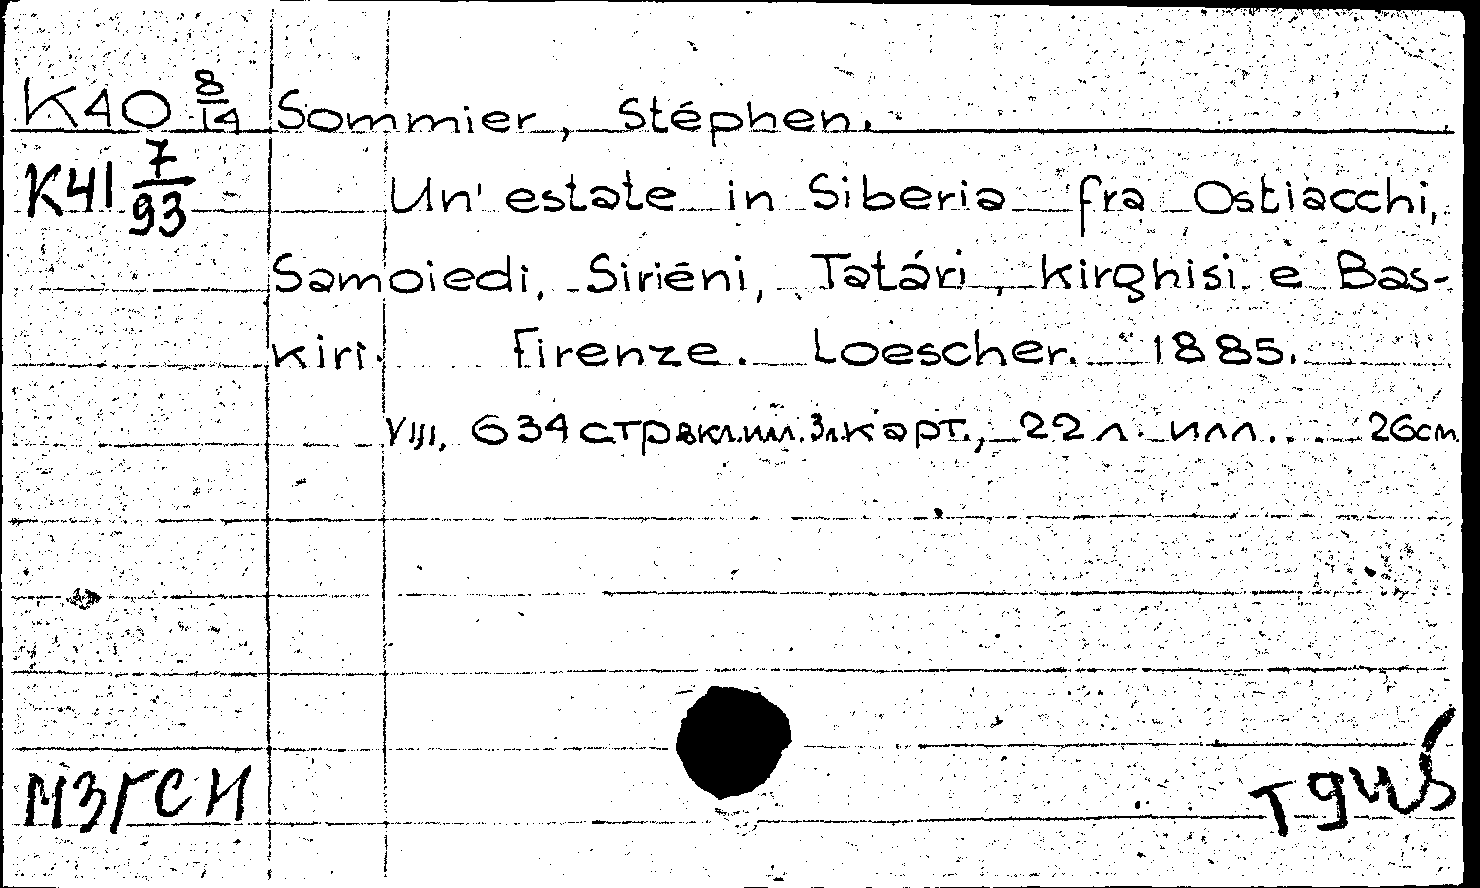 K40 8/14 Sommier, Stéphen.
K41 7/93 Un' estate in Siberia fra Ostiacchi,
Samoiedi, Siriéni, Tatári, Kirghisi e Bas-
kiri. Firenze. Loescher. 1885.
VIII, 634 стр вкл. илл. 3 л. карт., 22 л. илл. 26 cm
МЗГСИ